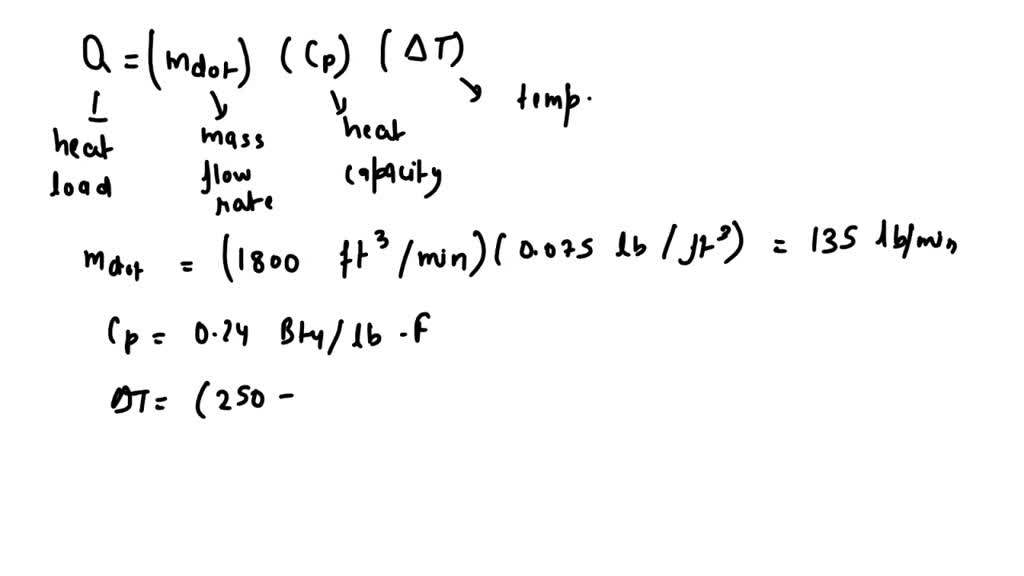 Q = (mdot) (Cp) (ΔT)
heat load
mass flow rate
heat capacity
temp.
mdot = (1800 ft³/min)(0.075 lb/ft³) = 135 lb/min
Cp = 0.24 Btu/lb-F
ΔT = (250 -